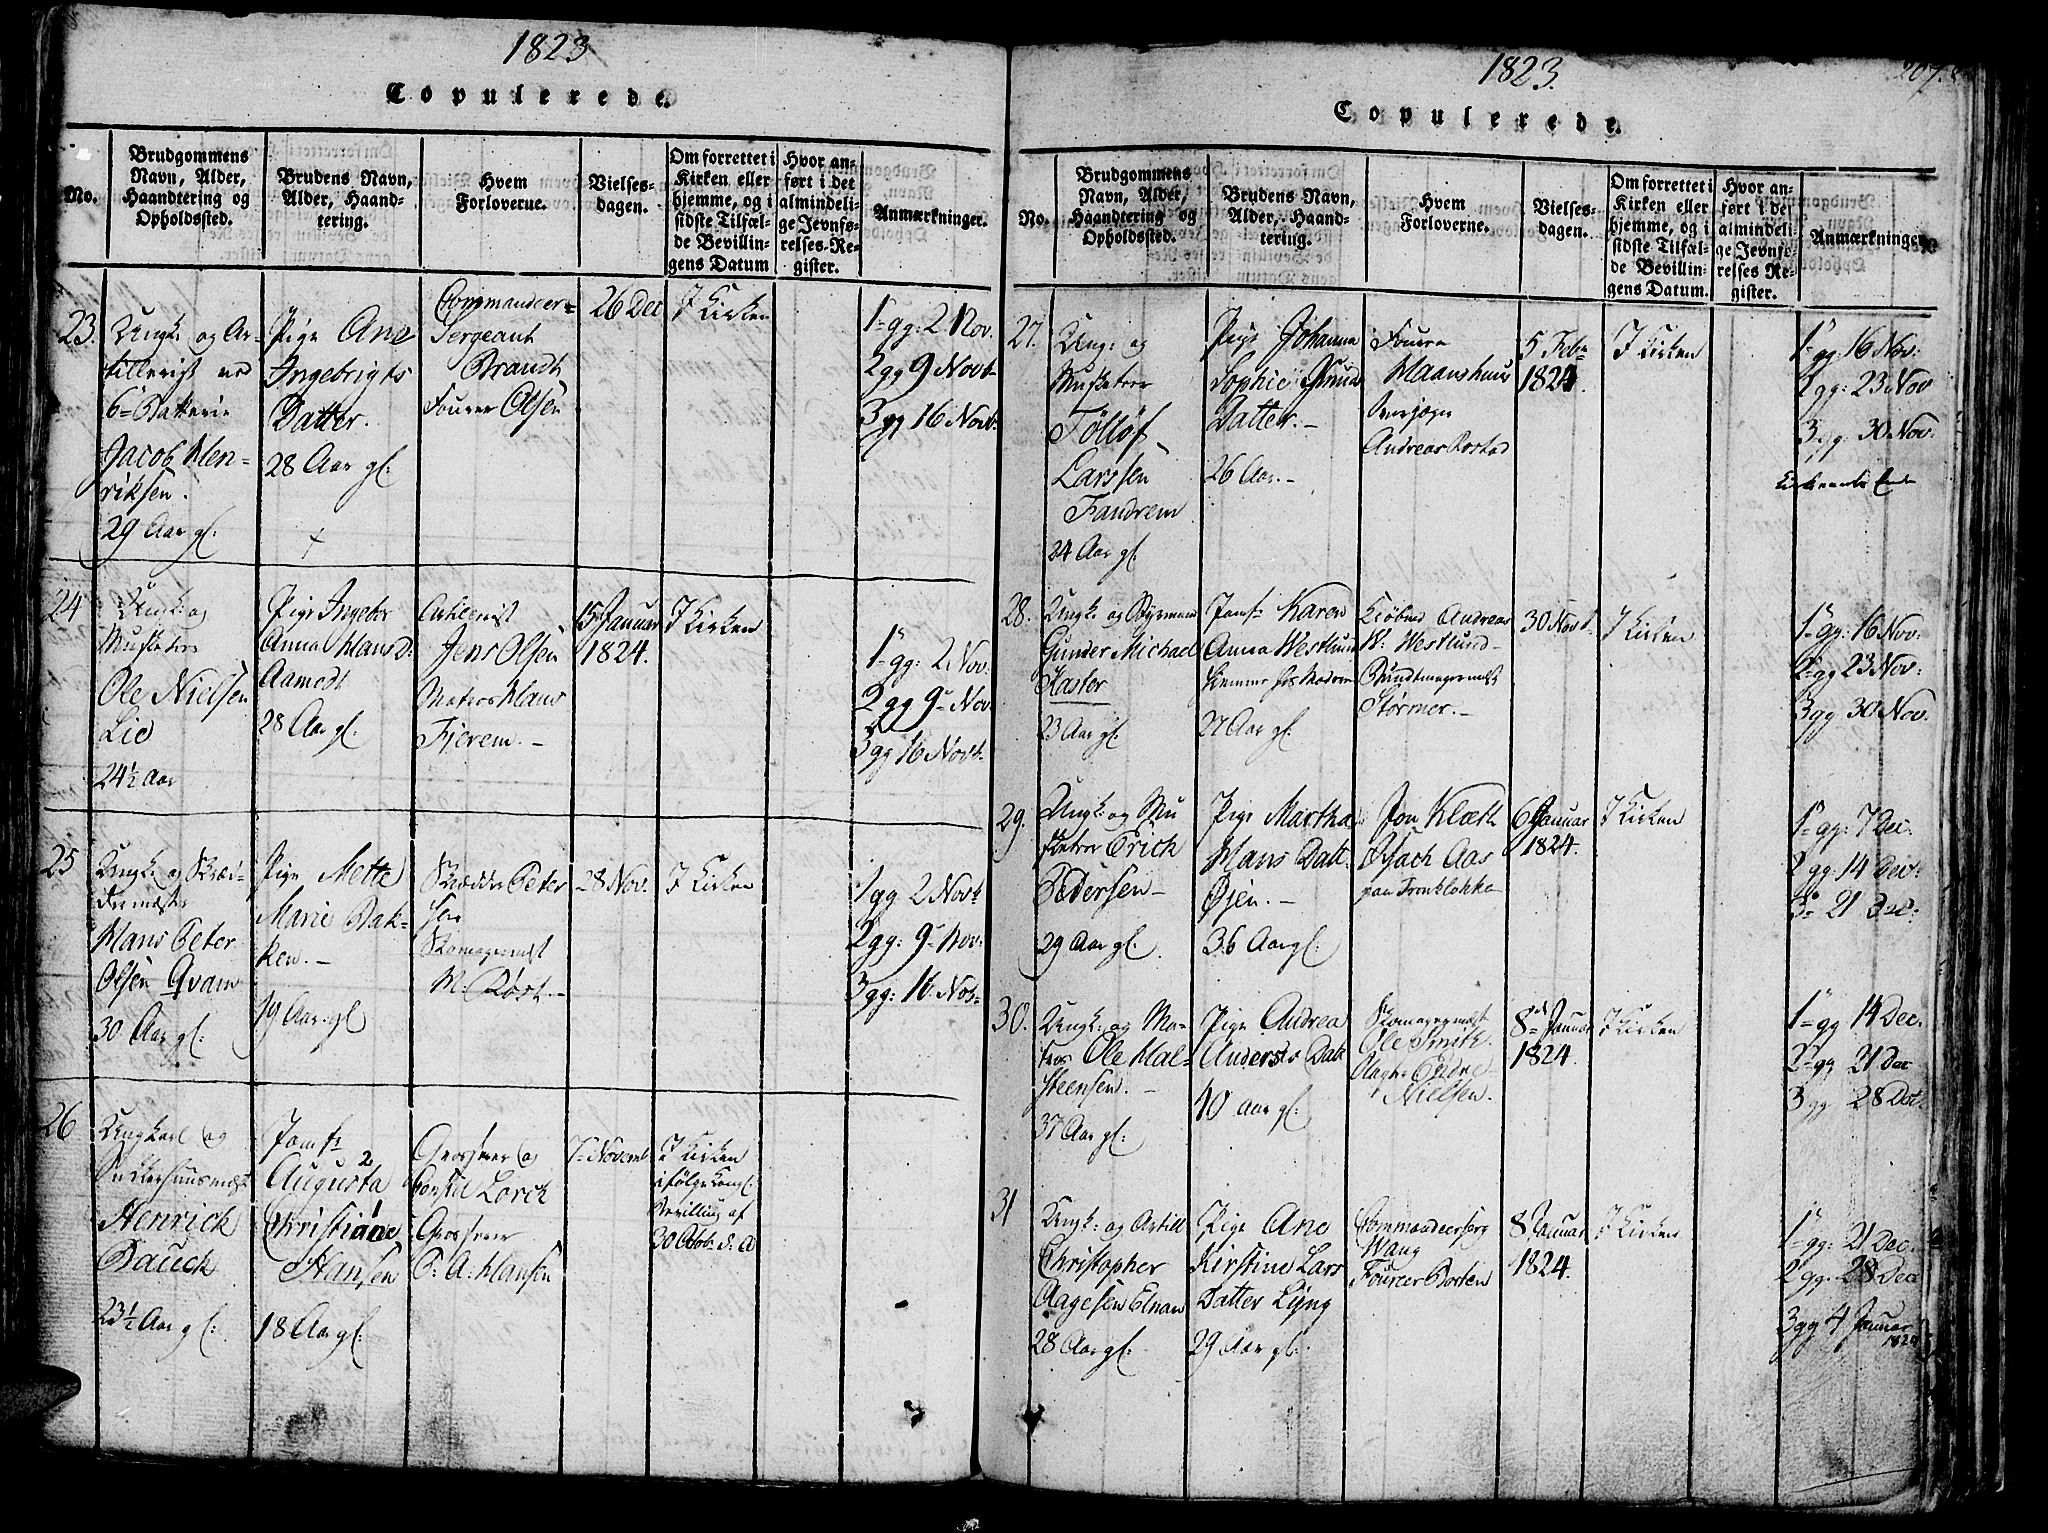 1823
Copulerede.
No.
Brudgommens Navn, Alder, Haandtering og Opholdssted.
Brudens Navn, Alder, Haandtering.
Hvem Forloverne.
Vielsesdagen.
Om forrettet i Kirken eller hjemme, og i sidste Tilfælde Bevillingens Datum
Hvor anført i det almindelige Jevnførelses-Register.
Anmærkninger.
23.
Ungk: og Artillerist ved
6te Batterie
Jacob Henriksen.
29 Aar gl:
Pige Ane
Ingebrigts
Datter.
28 Aar gl.
Commandeer=
Sergeant
Brandt
Fourer Olsen
26 Dec
I Kirken
1=gg: 2 Nov.
2 gg 9 Novb
3 gg 16 Novb.
24
Ungk: og
Musketeer
Ole Nielsen
Lie
24½ Aar
Pige Ingebr
Anna Hans D:
Aamodt
28 Aar gl.
Artillerist
Jens Olsen
Matros Hans
Fjerem.-
15 Januar
1824.
I Kirken
1=gg: 2 Nov:
2 gg 9 Nov
3 gg 16 Novb.
25
Ungk: og Skræddermester
Hans Peter
Olsen Qvam
30 Aar gl.
Pige Mette
Marie Bakken.-
19 Aar. gl
Skrædder Petersen
Skomagermest
M: Røst.-
28 Nov.
I Kirken
1 gg 2 Novb
2 gg: 9 Nov:
3 gg: 16 Nov=
26
Ungkarl og
Henrick
Bauck
23½ Aar gl:
Jomfr
Augusta 2
Christiane 1
Hansen
18 Aar gl:
Grosserer og
Consul Lorck
Grosserer
C: A: Hansen
7 Novemb
I Kirken
ifølge Kongl:
Bevilling af
30 s: A
1823.
207.
Copulerede.
No.
Brudgommens Navn, Alder, Haandtering og Opholdssted.
Brudens Navn, Alder, Haandtering.
Hvem Forloverne.
Vielsesdagen.
Om forrettet i Kirken eller hjemme, og i sidste Tilfælde Bevillingens Datum.
Hvor anført i det almindelige Jevnførelses Register.
Anmærkninger.
27.
Ung: og
Musketeer
Tølløf
Larssen
Fandrem
24 Aar gl.
Pige Johanna
Sophie Knuds
Datter.-
26 Aar.-
Fourer
Maanshuus
Andreas Rostad
5 Febr
1824
I Kirken
1=gg: 16 Nov:
2 gg: 23 Nov
3 gg. 30 Nov:
28.
Ungk: og Styrmand
Gunder Michael
Kaster
23 Aar gl:
Jomfr Karen
Anna Westlund
hjemme hos Moderen
27 Aar gl:
Kiøbmd Andreas
W: Westlund-
Bundtmagermest
Størmer.-
30 Novb.
I Kirken
1=gg: 16 Nov:
2=gg 23 Nov:
3 gg 30 Nov.
29.
Ungk: og Musketeer Erick
Pedersen-
29 Aar gl.
Pige Martha
Hans Datt
Øjen.-
36 Aar gl:
Jon Klæth
Isach Aas
paa Tronklokka
6 Januar
1824.
I Kirken
1=gg: 7 Dec.
2 gg: 14 Dec:
3 21 Dec:
30.
Ungk: og Matros Ole Halsteensen.-
37 Aar gl:
Pige Andrea
Anders Datt
40 aar gl:
Skomagermest
Ole Smith.
Endre
Nielsen.
8 Januar
1824.
I Kirken
1=gg 14 Dec.
2=gg 21 Dec
3 gg 28 Dec:
31
Ungk: og Artill
Christopher
Aagesen Elnan
28 Aar gl:
Pige Ane
Kirstine Lars
Datter Lyng
29 Aar gl:
Commandeersrg
Wang
Foureer Borten
8 Januar
1824.
I Kirken
1=gg: 21 Dec.
2 gg: 28 Dec
3 gg 4 Januar
1824